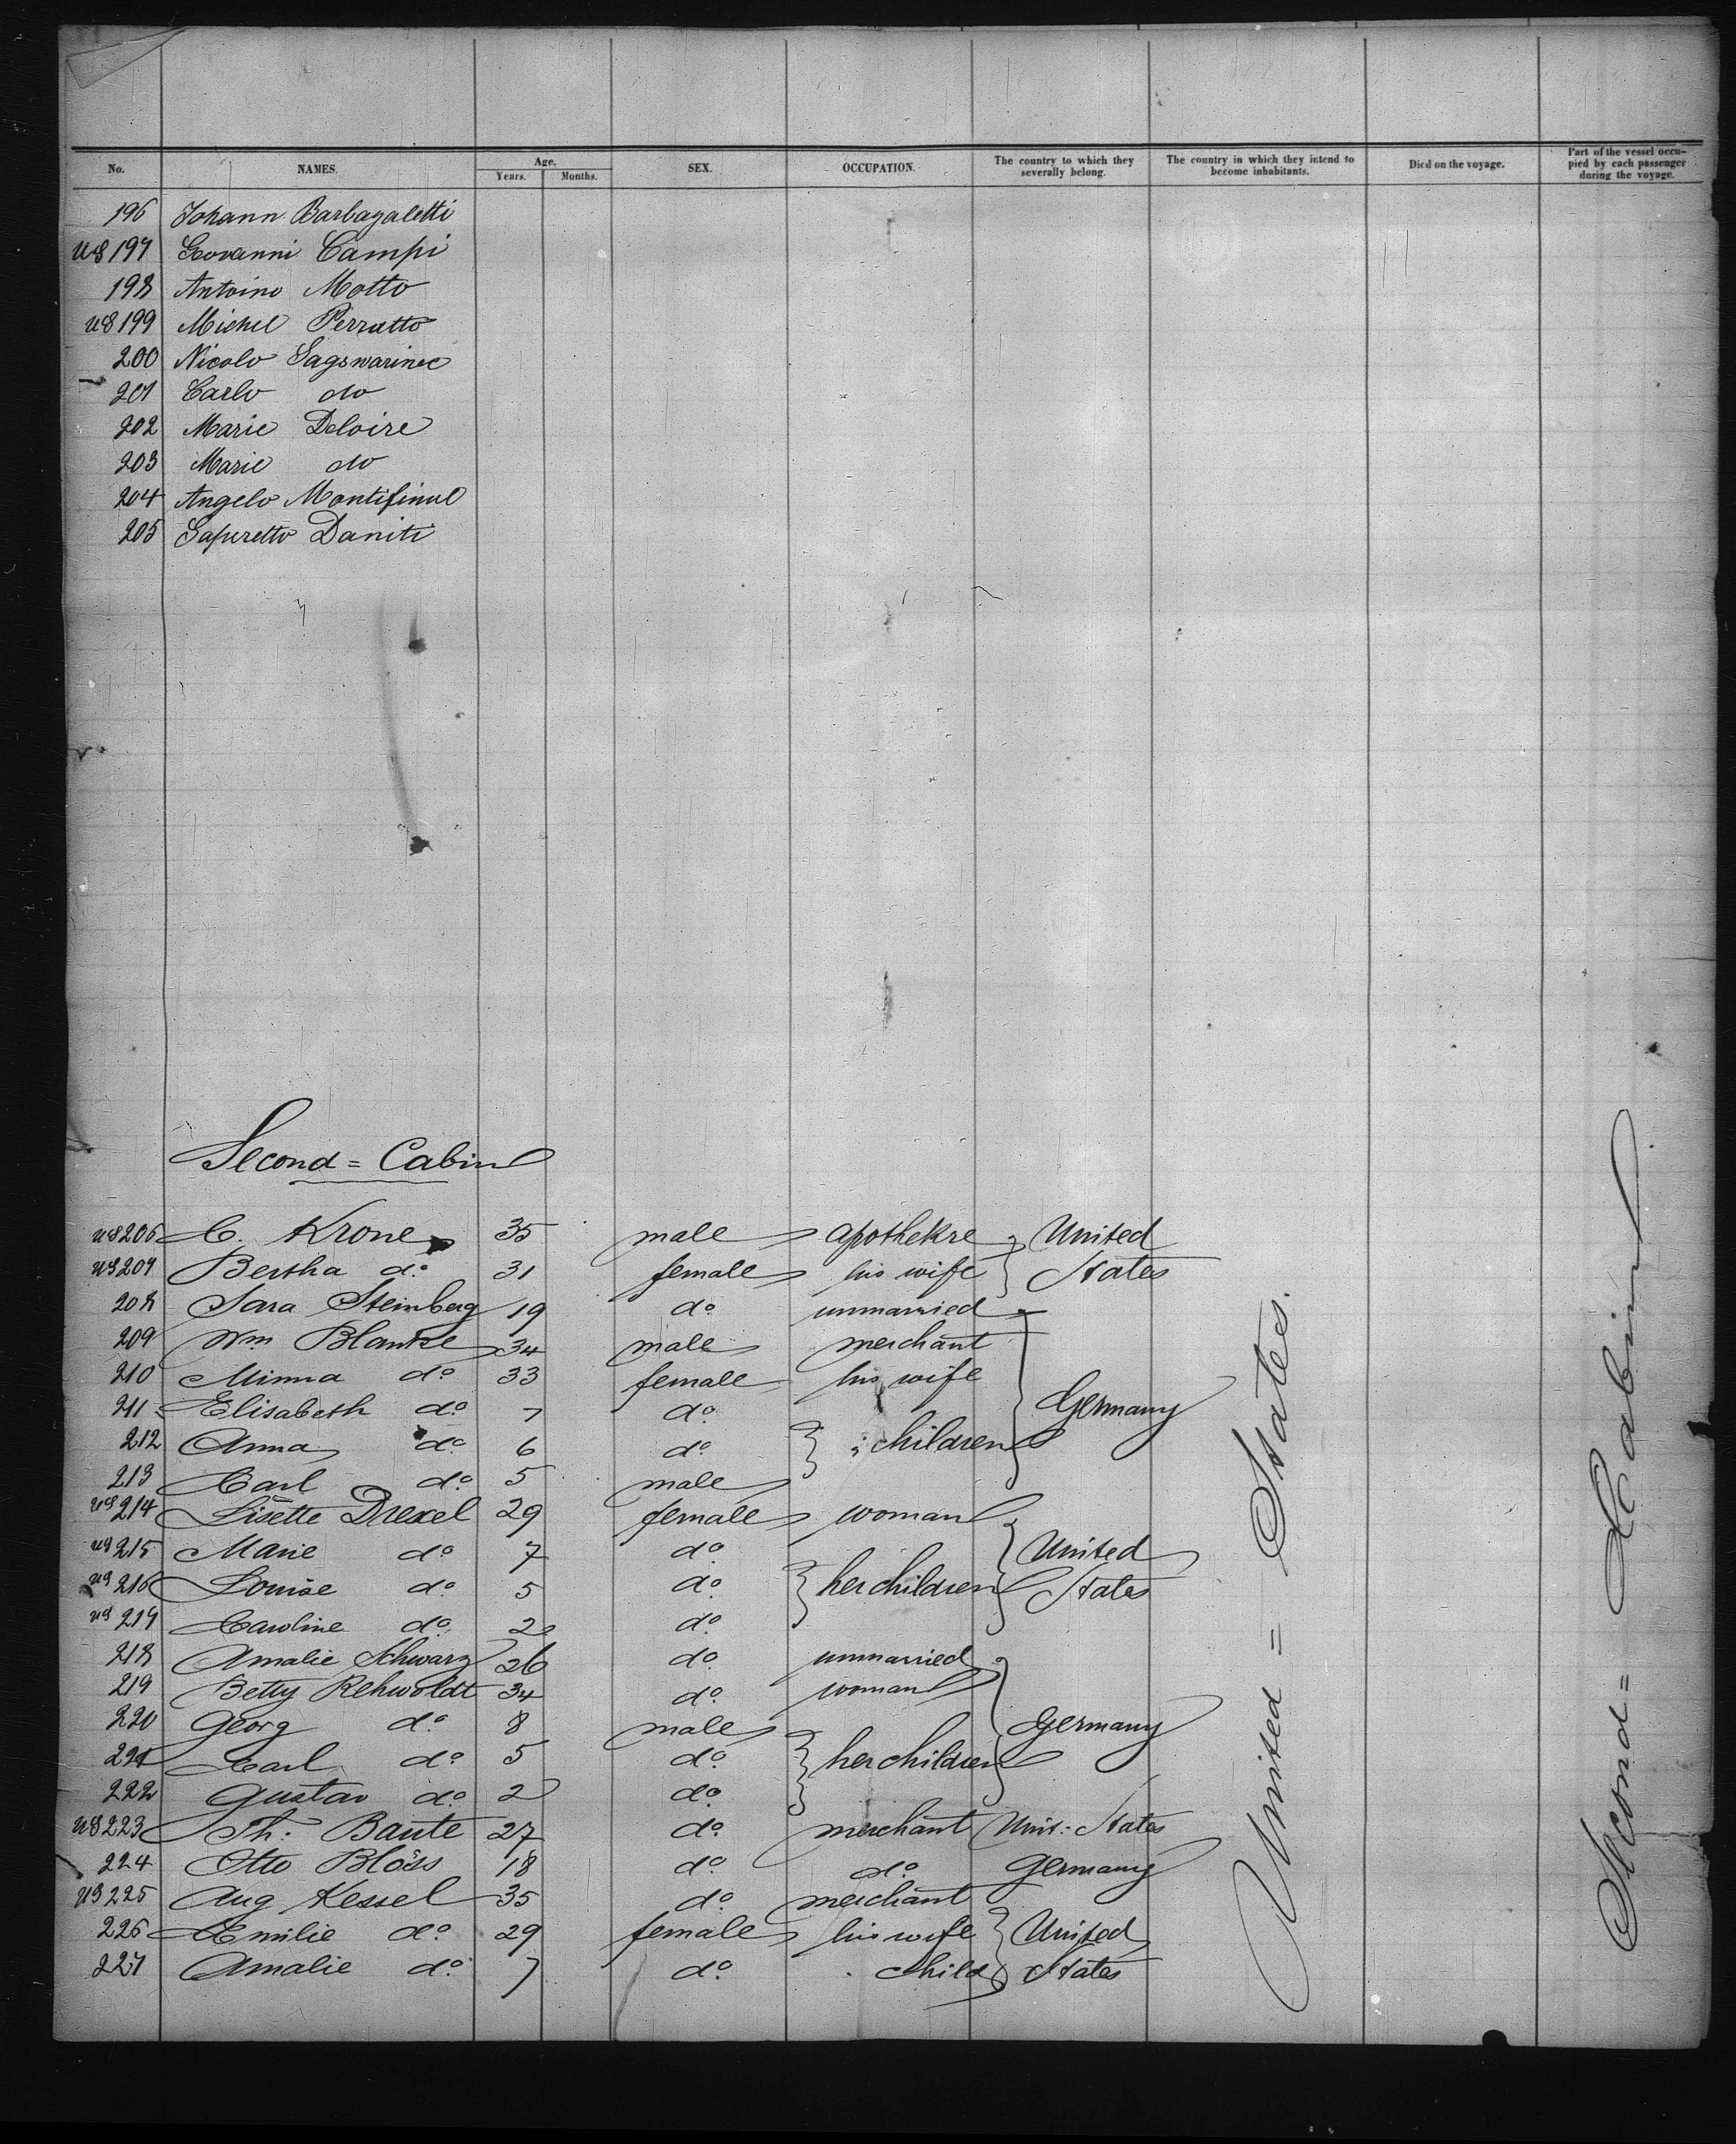 No. NAMES. Age. Years. Months. SEX. OCCUPATION. The country to which they severally belong. The country in which they intend to become inhabitants. Died on the voyage. Part of the vessel occupied by each passenger during the voyage.
196 Johann Barbagaletti
US 197 Giovanni Campi
198 Antoino Motto
US 199 Michel Perratto
200 Nicolo
201 Carlo do
202 Marie Deloire
203 Marie do
204 Angelo
205 Daniti
Second = Cabin
US 206 C. Krone 35 male apothekre United
US 207 Bertha do 31 female his wife States
208 Sara Steinberg 19 do unmarried
209 Wm Blanke 34 male merchant
210 Minna do 33 female his wife
211 Elisabeth do 7 do Germany
212 Anna do 6 do children
213 Carl do 5 male
US 214 Lisette Drexel 29 female woman
US 215 Marie do 7 do United
US 216 Louise do 5 do her children States
US 217 Caroline do 2 do
218 Amalie Schwarz 26 do unmarried
219 Betty Rehwoldt 34 do woman
220 Georg do 8 male Germany
221 Carl do 5 do her children
222 Gustav do 2 do
US 223 Th: Bante 27 do merchant Unit: States
224 Otto Blöss 18 do do Germany
US 225 Aug Kessel 35 do merchant
226 Emilie do 29 female his wife United
227 Amalie do 7 do child States
United = States.
Second = Cabin